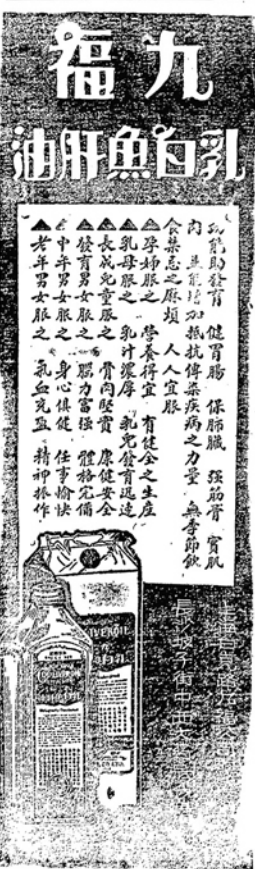 九福
乳白魚肝油
功能助發育 健胃腸 保肺臟 強筋骨 實肌
肉 並能增加抵抗傳染疾病之力量 無季節飲
食禁忌之麻煩 人人宜服
▲孕婦服之 營養得宜 有健全之生産
▲乳母服之 乳汁濃厚 乳兒發育迅速
▲長成兒童服之 骨肉堅實 康健安全
▲發育男女服之 腦力富強 體格完備
▲中年男女服之 身心俱健 任事愉快
▲老年男女服之 氣血充盈 精神振作
長沙坡子街中西大藥房